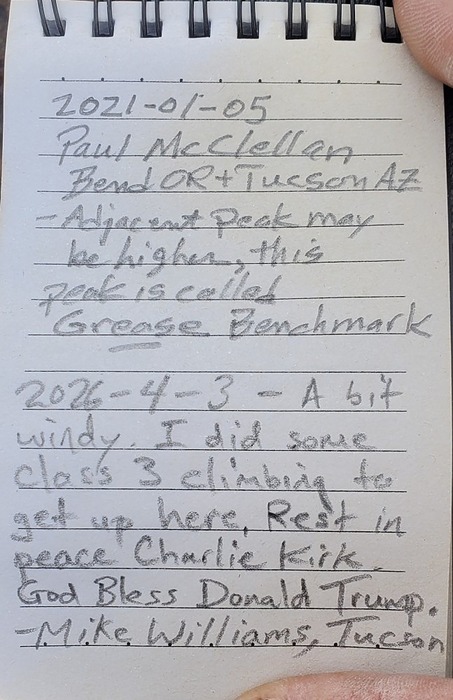 2021-01-05
Paul McClellan
Bend OR + Tucson AZ
- Adjacent peak may
be higher, this
peak is called
Grease Benchmark
2026-4-3 - A bit
windy. I did some
class 3 climbing to
get up here. Rest in
peace Charlie Kirk.
God Bless Donald Trump.
-Mike Williams, Tucson